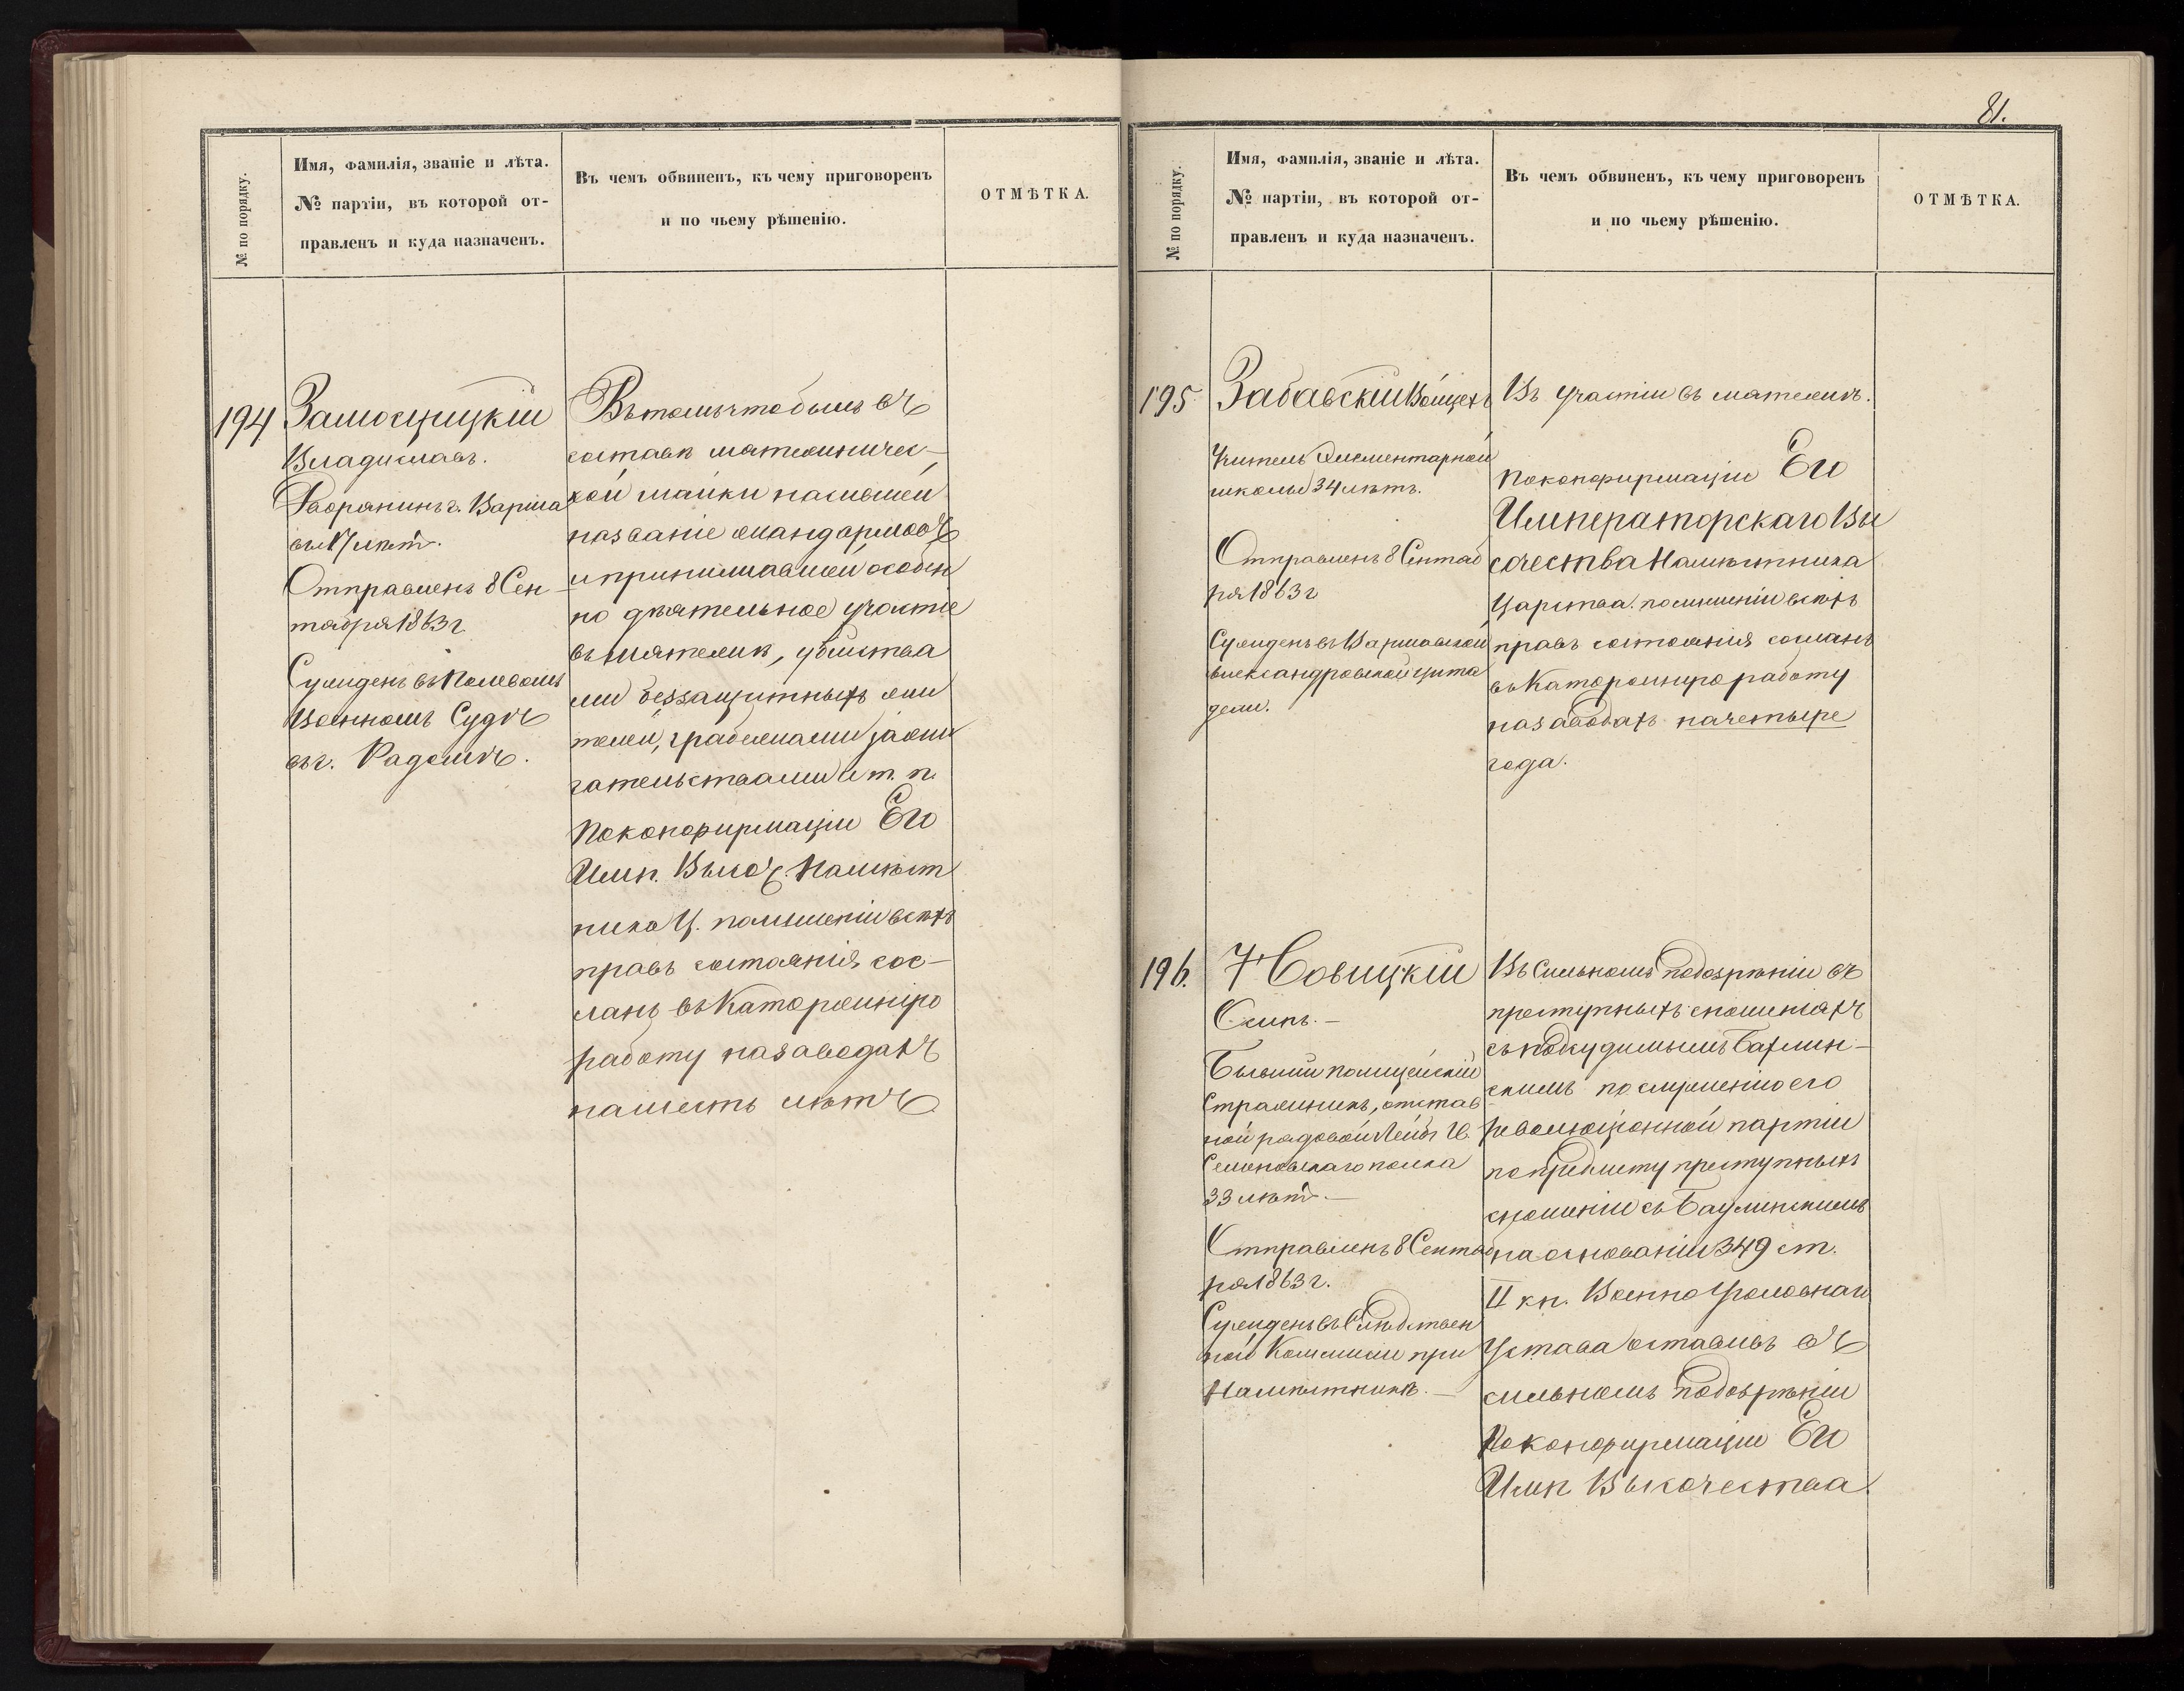 № по порядку.
Имя, фамилія, званіе и лѣта.
№ партіи, въ которой от-
правленъ и куда назначенъ.
Въ чемъ обвиненъ, къ чему приговоренъ
и по чьему рѣшенію.
ОТМѢТКА.
194
Замосцицкій
Владиславъ.
Дворянинъ г. Варша
вы лѣтъ.
Отправленъ 8 Сен
тября 1863 г
Сужденъ въ Полевомъ
Военномъ Судѣ
въ г. Радомѣ.
Въ томъ что былъ въ
составѣ мятежничес-
кой шайки носившей
названіе жандармовъ
и принимавшей особен
но дѣятельное участіе
въ мятежѣ, убійства
ми беззащитныхъ жи
телей, грабежами зажи
гательствами и т. п.
По конфирмаціи Его
Имп. Высоч. Намѣст
ника Ц. по лишеніи всѣхъ
правъ состоянія сос-
ланъ въ Каторжную
работу на заводахъ
на шесть лѣтъ
81.
№ по порядку.
Имя, фамилія, званіе и лѣта.
№ партіи, въ которой от-
правленъ и куда назначенъ.
Въ чемъ обвиненъ, къ чему приговоренъ
и по чьему рѣшенію.
ОТМѢТКА.
195
Забавскій Войцехъ
Учитель Элементарной
школы 34 лѣтъ.
Отправленъ 8 Сентяб
ря 1863 г
Сужденъ въ Варшавской
Александровской цита
дели.
Въ участіи въ мятежѣ.
По конфирмаціи Его
Императорскаго Вы
сочества Намѣстника
Царства. по лишеніи всѣхъ
правъ состоянія сосланъ
въ Каторжную работу
на заводахъ на четыре
года.
196.
Новицкій
Осипъ. -
Бывшій полицейскій
Стражникъ, отстав
ной рядовой Лейбъ Гв.
Семеновскаго полка
33 лѣтъ. -
Отправленъ 8 Сентяб
ря 1863 г.
Сужденъ въ Слѣдствен
ной Коммисіи при
Намѣстникѣ. -
Въ Сильномъ подозрѣніи въ
преступныхъ сношеніяхъ
съ подсудимымъ
скимъ по служенію его
революціонной партіи
по предмету преступныхъ
сношеній съ
на основаніи 349 ст.
II кн. Военно Уголовнаго
Устава оставивъ въ
сильномъ подозрѣніи
По конфирмаціи Его
Имп Высочества